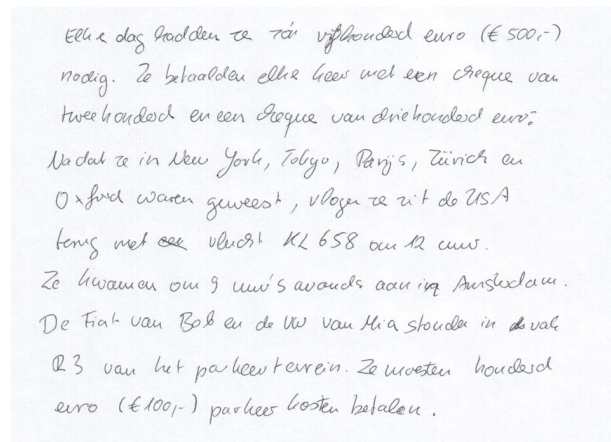 Elke dag hadden ze zo'n vijfhonderd euro (€ 500,-)
nodig. Ze betaalden elke keer met een cheque van
tweehonderd en een cheque van driehonderd euro.
Nadat ze in New York, Tokyo, Parijs, Zürich en
Oxford waren geweest, vlogen ze uit de USA
terug met een vlucht KL 658 om 12 uur.
Ze kwamen om 9 uur 's avonds aan in Amsterdam.
De Fiat van Bob en de VW van Mia stonden in vak
R3 van het parkeerterrein. Ze moesten honderd
euro (€ 100,-) parkeerkosten betalen.